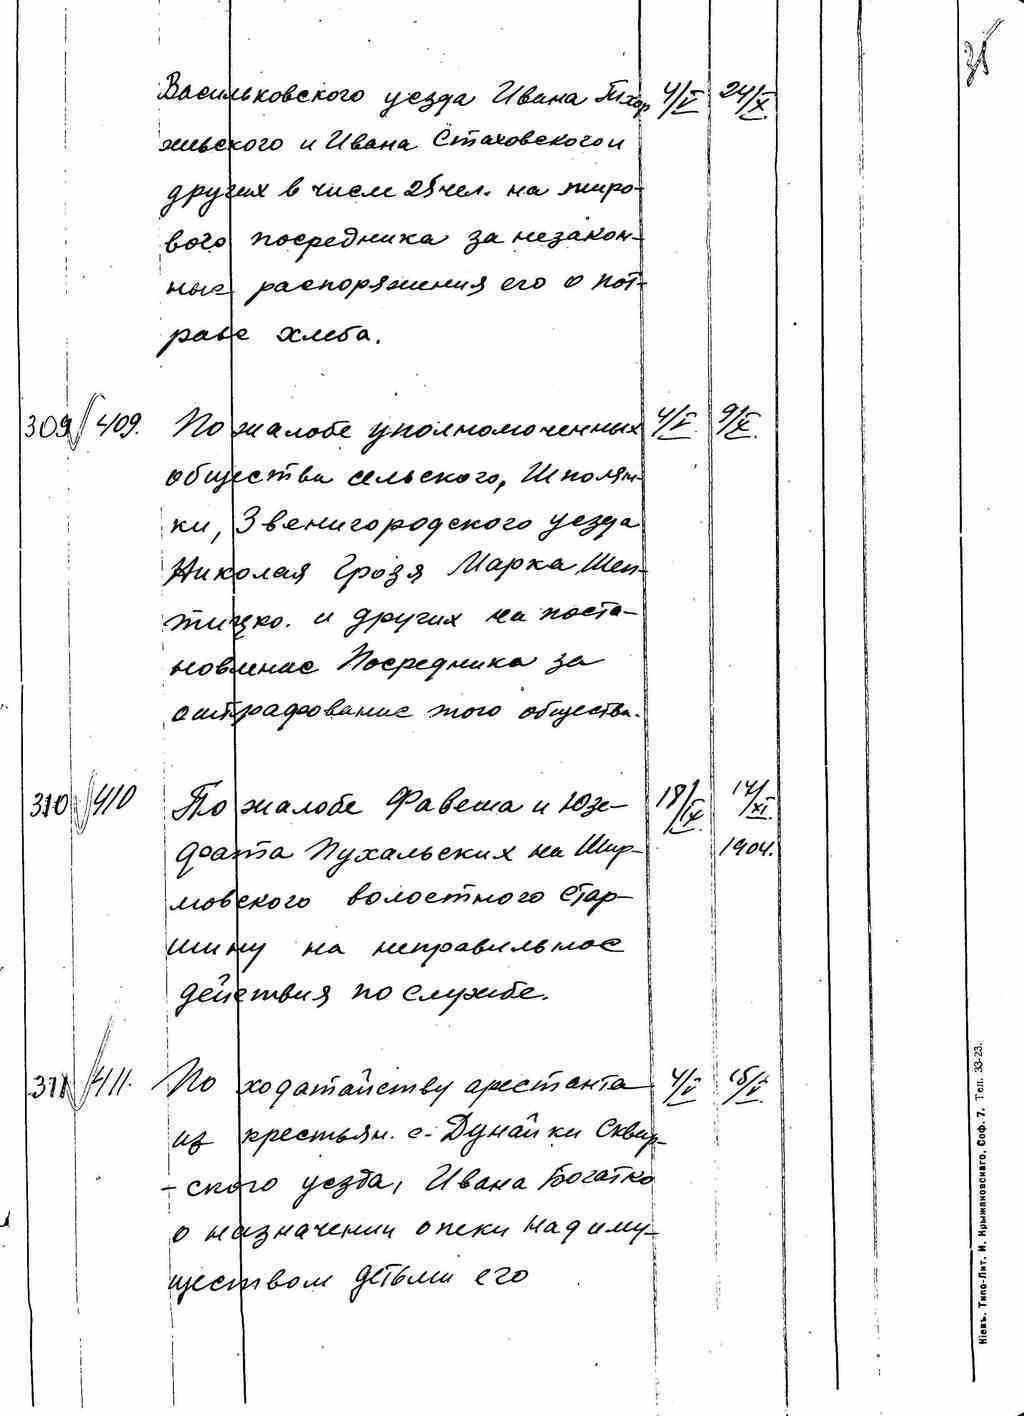 35
Васильковского уезда Ивана 4/V 24/X.
жевского и Ивана Стаховского и
других в числе 25 чел. на миро-
вого посредника за незакон-
ные распоряжения его о пот-
раве хлеба.
309 409. По жалобе уполномоченных 4/V. 9/X.
общества сельского, Шполян-
ки, Звенигородского уезда
Николая Грозя Марка Шеп-
тицко. и других на поста-
новление Посредника за
оштрафование этого общества.
310 410 По жалобе Фавеша и Юзе- 18/IX. 14/XI.
фата Пухальских на Шир- 1904.
мовского волостного стар-
шину на неправильное
действия по службе.
311 411. По ходатайству арестанта 4/V
из крестьян. с. Дунайки Сквир-
-ского уезда, Ивана Богатко
о назначении опеки над иму-
ществом детьми его
Кіевъ. Типо-Лит. И. Крыжановскаго, Соф. 7. Тел. 33-23.